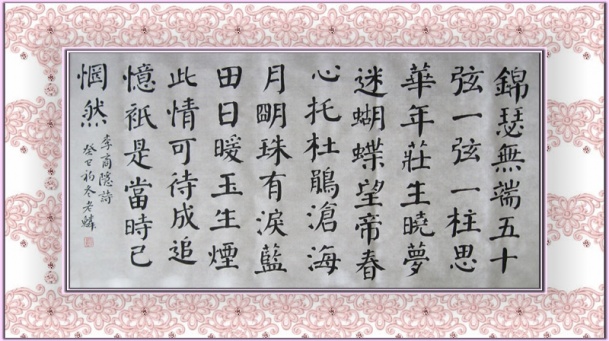 錦瑟無端五十
弦一弦一柱思
華年莊生曉夢
迷蝴蝶望帝春
心托杜鵑滄海
月朙珠有淚藍
田日暖玉生煙
此情可待成追
憶祇是當時已
惘然
李商隱詩
癸巳初冬老麟